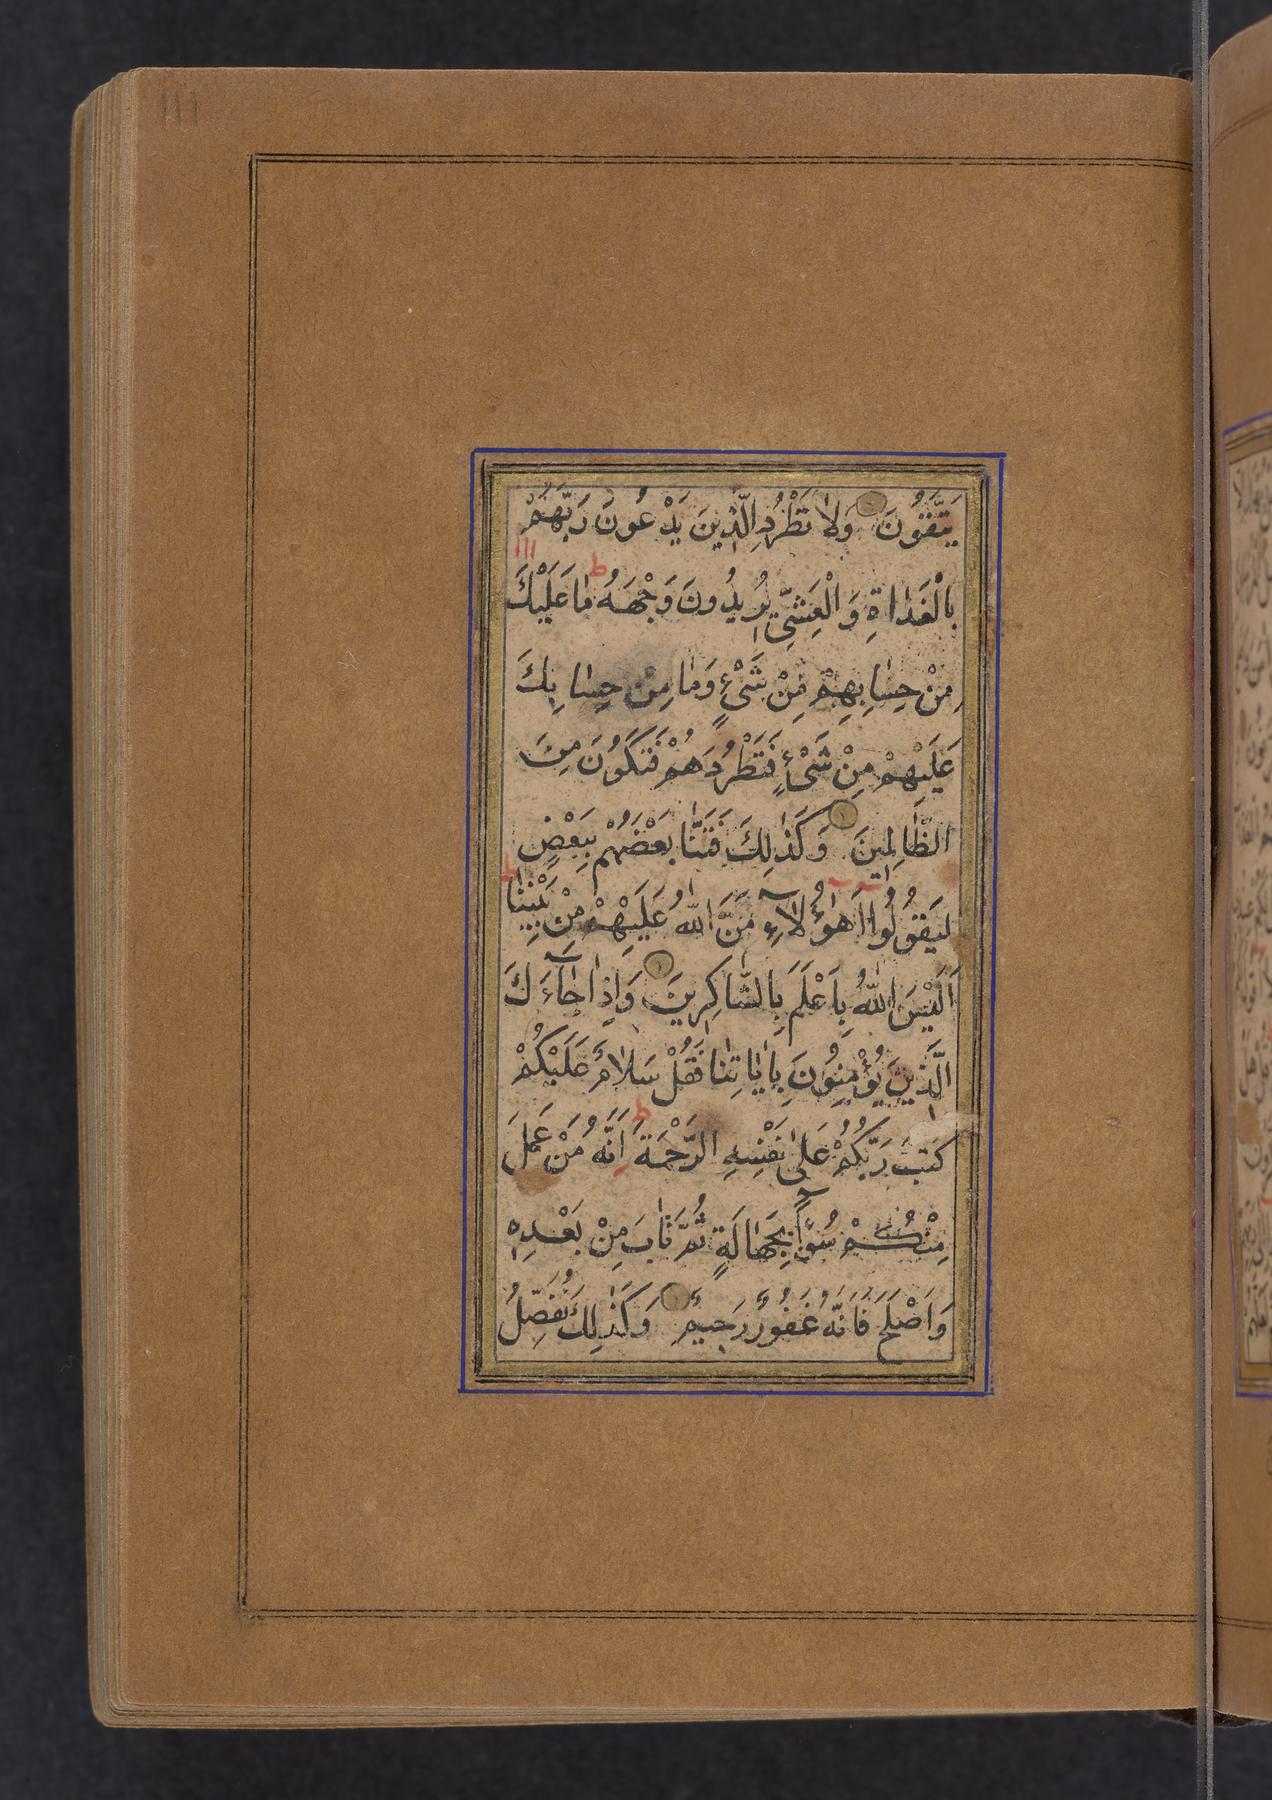 111
يَتَّقُونَ وَلَا تَطْرُدِ الَّذِينَ يَدْعُونَ رَبَّهُمْ
بِالْغَدَاةِ وَالْعَشِيِّ يُرِيدُونَ وَجْهَهُ ط مَا عَلَيْكَ
مِنْ حِسَابِهِمْ مِنْ شَيْءٍ وَمَا مِنْ حِسَابِكَ
عَلَيْهِمْ مِنْ شَيْءٍ فَتَطْرُدَهُمْ فَتَكُونَ مِنَ
الظَّالِمِينَ وَكَذَٰلِكَ فَتَنَّا بَعْضَهُمْ بِبَعْضٍ
لِيَقُولُوا أَهَٰؤُلَاءِ مَنَّ اللَّهُ عَلَيْهِمْ مِنْ بَيْنِنَا ط
اَلَيْسَ اللَّهُ بِاَعْلَمَ بِالشَّاكِرِينَ وَاِذَا جَآءَكَ
الَّذِينَ يُؤْمِنُونَ بِاٰيَاتِنَا فَقُلْ سَلَامٌ عَلَيْكُمْ
كَتَبَ رَبُّكُمْ عَلَىٰ نَفْسِهِ الرَّحْمَةَ ط اَنَّهُ مَنْ عَمِلَ
مِنْكُمْ سُوٓءًا بِجَهَالَةٍ ثُمَّ تَابَ مِنْ بَعْدِهِ
وَاَصْلَحَ فَاَنَّهُ غَفُورٌ رَحِيمٌ وَكَذَٰلِكَ نُفَصِّلُ